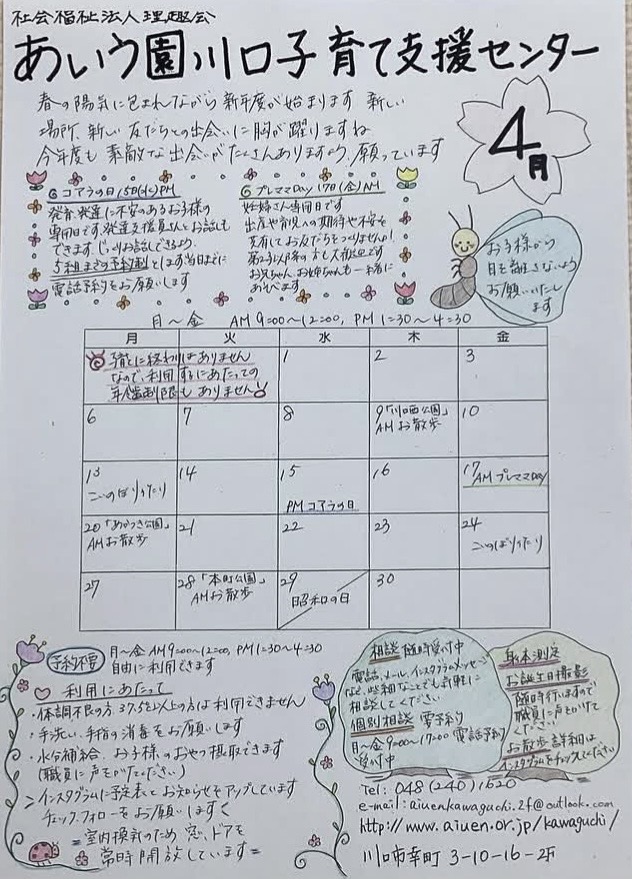 社会福祉法人理趣会
あいう園川口子育て支援センター
4月
春の陽気に包まれながら新年度が始まります 新しい
場所、新しい友だちとの出会いに胸が躍りますね
今年度も素敵な出会いがたくさんありますよう、願っています
コアラの日 15日(水)PM
発育、発達に不安のあるお子様の
専用日です。発達支援員さんとお話しも
できます。じっくりお話しできるよう、
5組までの予約制とします当日までに
電話予約をお願いします
プレママDay 17日(金)AM
妊婦さん専用日です
出産や育児への期待や不安を
共有してお友だちをつくりませんか!
第2子以降の方も大歓迎です
お兄ちゃん、お姉ちゃんも一緒に
あそべます。
お子様から
目を離さないよう
お願いいたし
ます
月～金 AM9:00～12:00, PM1:30～4:30
月 火 水 木 金
子育てに終わりはありません
なので、利用するにあたっての
年齢制限もありません!
1 2 3
6 7 8 9「川口西公園」 10
AMお散歩
13 14 15 16 17
こいのぼり
PMコアラの日
AMプレママDay
20「あかつき公園」 21 22 23 24
AMお散歩
こいのぼり
27 28「本町公園」 29 30
AMお散歩
昭和の日
予約不要
月～金 AM9:00～12:00, PM1:30～4:30
自由に利用できます
利用にあたって
・体調不良の方、37.5℃以上の方は利用できません
・手洗い、手指の消毒をお願いします
・水分補給、お子様のおやつ摂取できます
(職員に声をかけてください)
・インスタグラムに予定表とお知らせをアップしています
チェック、フォローをお願いします
=室内換気のため、窓、ドアを
常時開放しています=
相談 随時受付中
電話、メール、インスタグラムメッセージ
など、些細なことでもお気軽に
相談してください
個別相談 要予約
月～金 9:00～17:00 電話予約
受付中
身体測定
お誕生日撮影
随時行いますので
職員に声をかけて
ください
お散歩 詳細は
インスタグラムをチェックしてください
Tel: 048(240)1620
e-mail: aiuenkawaguchi.2f@outlook.com
http://www.aiuen.or.jp/kawaguchi/
川口市幸町 3-10-16-2F